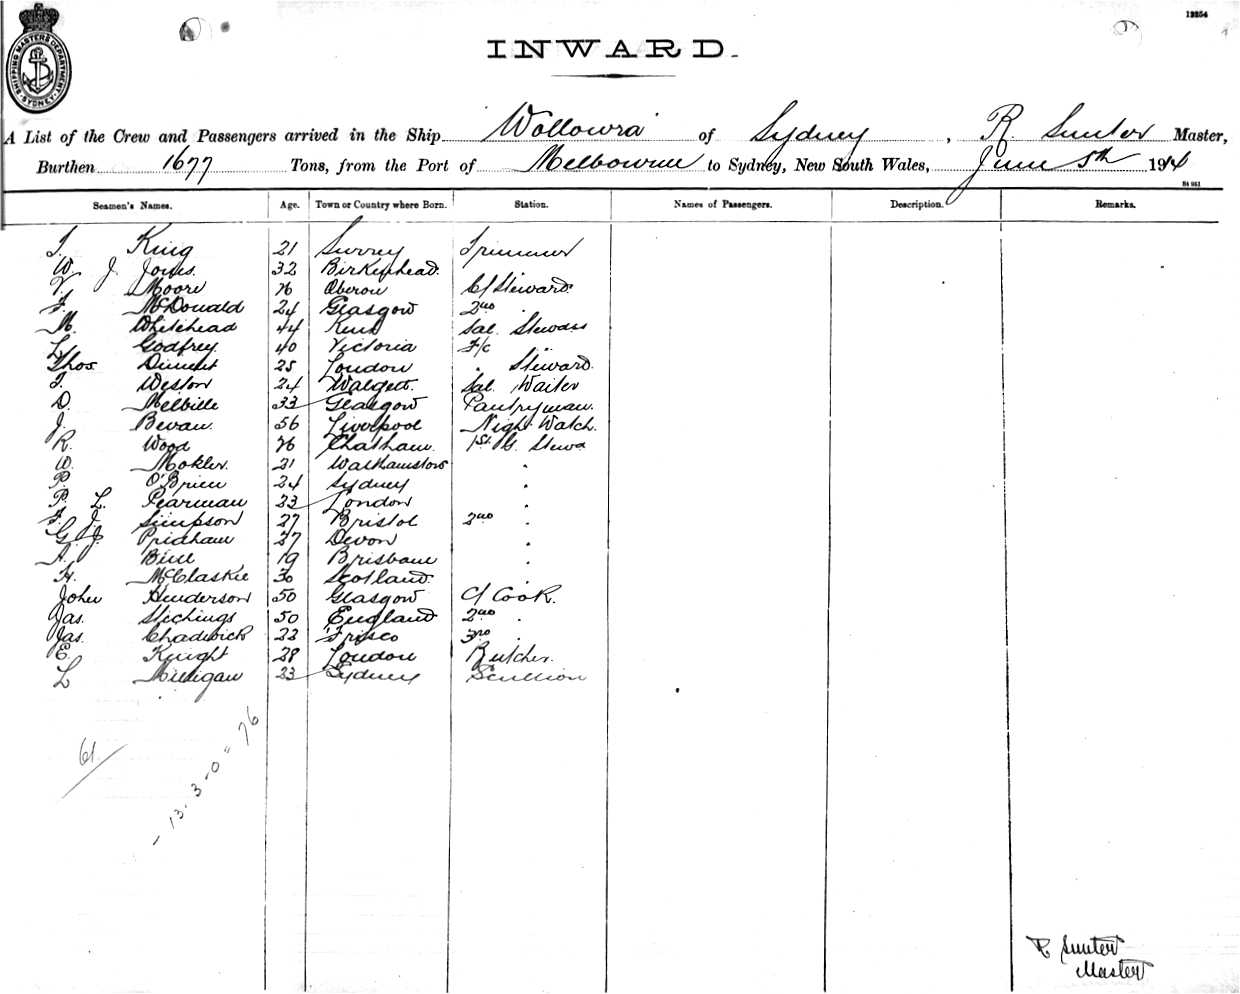 12254
SHIPPING MASTERS DEPARTMENT SYDNEY
INWARD.
A List of the Crew and Passengers arrived in the Ship Wollowra of Sydney, R. Sunter Master,
Burthen 1677 Tons, from the Port of Melbourne to Sydney, New South Wales, June 5th 1914
Seamen's Names. Age. Town or Country where Born. Station. Names of Passengers. Description. Remarks.
T. King 21 Surrey Trimmer
W. J. Jones. 32 Birkenhead.
V. Moore 26 Oberon C/Steward.
F. McDonald 24 Glasgow 2nd .
M. Whitehead 44 Kent Sal. Stewdss
L. Godfrey. 40 Victoria F/c ..
Thos Diment 25 London . Steward.
T. Weston 24 Walgett. Sal. Waiter
D. Melville 33 Glasgow Pantryman.
J. Bevan. 56 Liverpool Night Watch.
R. Wood 26 Chatham. 1st Stewd
W. Mokler. 21 Walthamstow .
P. O'Brien 24 Sydney .
P. L. Pearman 23 London .
F. J. Simpson 27 Bristol 2nd .
G. J. Pridham 27 Devon .
A. 19 Brisbane .
H. McClaskie 30 Scotland. .
John Henderson 50 Glasgow C/ Cook.
Jas. Stichings 50 England 2nd .
Jas. Chadwick 22 'Frisco 3rd .
E. Knight 28 London Butcher.
L Milligan 23 Sydney Scullion
61
- 13. 3. 0 " 76
R Sunter
Master